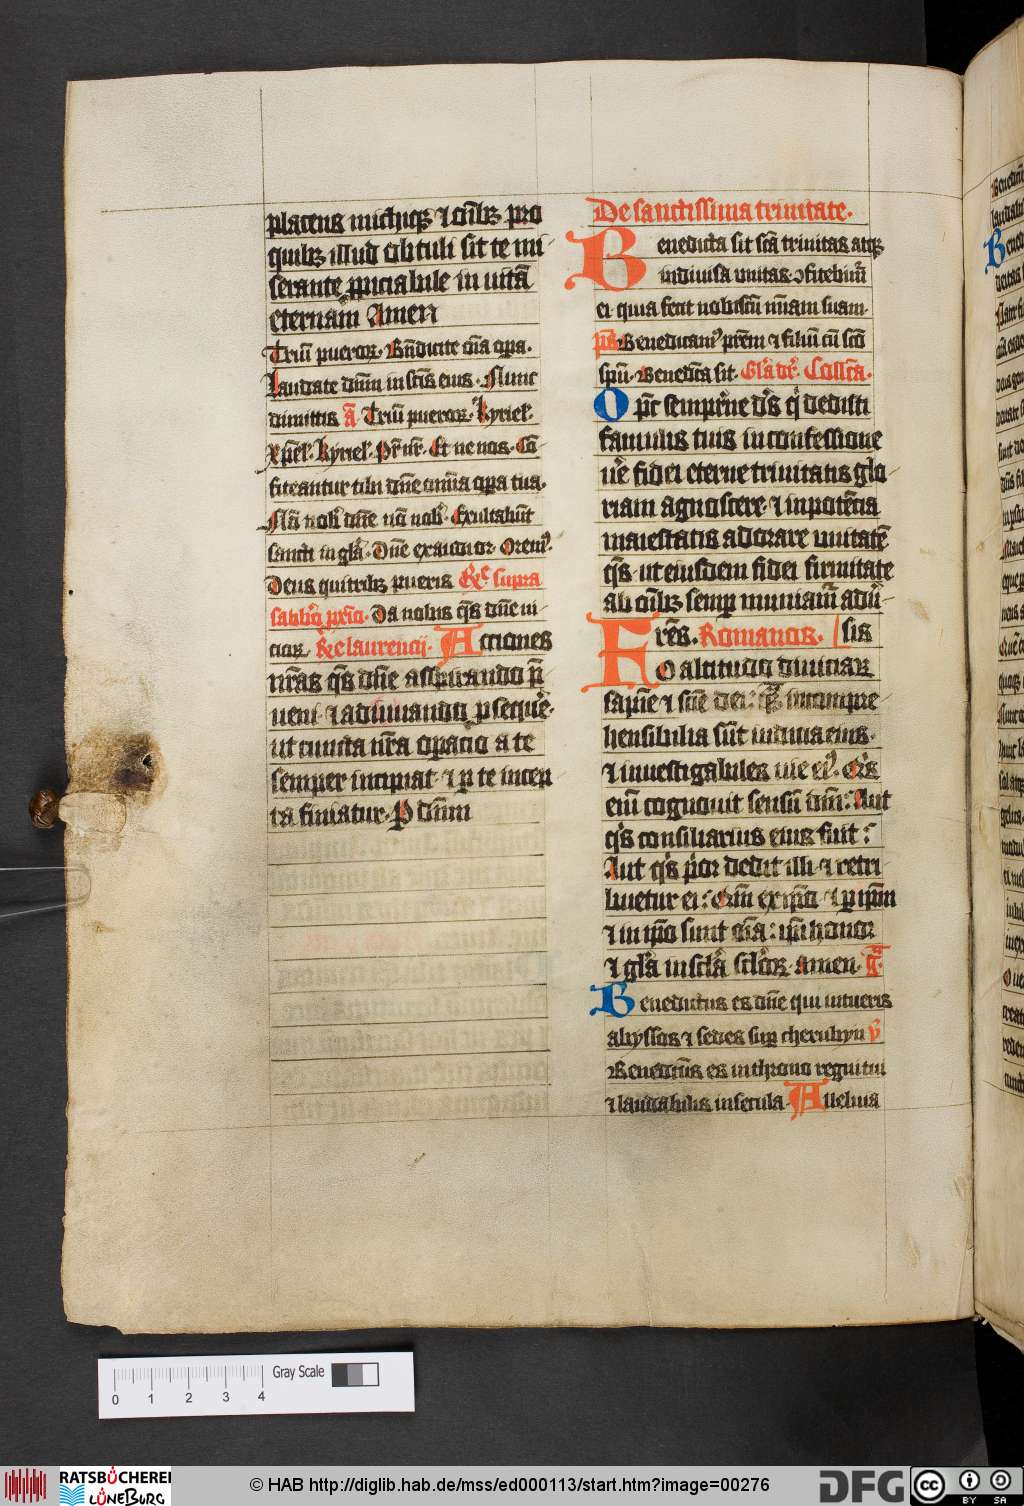 placens michiqꝫ ⁊ om̄ibꝫ pro
quibꝫ illud obtuli sit te mi
serante ꝓpiciabile in uitā
eternam Amen
Triū pueroꝝ. Bn̄dicite om̄a oꝑa.
Laudate dn̄m in sc̄is eius. Nunc
dimittis ā Triū pueroꝝ. kyriel'.
Xp̄el'. kyriel'. Pr̄ nr̄. Et ne nos. Cō
fiteantur tibi dn̄e om̄ia oꝑa tua.
Nō nob' dn̄e nō nob'. Exultabūt
sancti in gl'a. Dn̄e exaudi or. Orem'.
Deus qui tribꝫ pueris Rͤ supra
sabb'o pr̄io. Da nobis qs̄ dn̄e ui
cioꝝ. Rͤ laurencij. Acciones
nr̄as qs̄ dn̄e aspirando p̄
ueni. ⁊ adiuuando ꝓsequē.
ut cuncta nr̄a oracio a te
semper incipiat. ⁊ ꝑ te incep
ta finiatur. P dn̄m
De sanctissima trinitate.
Benedicta sit sc̄a trinitas atqꝫ
indiuisa unitas ꝯfitebim̄
ei quia fecit nobiscū m̄iam suam.
ps̄ Benedicam' prēm ⁊ filiū cū sc̄o
spū. Benedc̄a sit. Gl'a dr̄. Collc̄a.
Op̄c sempit'ne ds̄ qi dedisti
famulis tuis in confessione
ue'e fidei eterne trinitatis glo
riam agnoscere. ⁊ in potēcia
maiestatis adorare unitatē
qs̄ ut eiusdem fidei firmitate
ab om̄ibꝫ semꝑ muniam̄ adū'
Frēs. Romanos. sis
O altitudo diuiciaꝝ
sapiē ⁊ sciē dei: qm̄ incompre
hensibilia sūt iudicia eius.
⁊ inuestigabiles uie ei'. Qis
eni̅ cognouit sensū dn̄i: Aut
qis consiliarius eius fuit:
Aut qis p'or dedit illi ⁊ retri
buetur ei: Qm̄ ex ip̄o ⁊ ꝑ ip̄m
⁊ in ip̄o sunt om̄a: ip̄i honor
⁊ gl'a in scl'a scl'oꝝ. amen. g̅
Benedictus es dn̄e qui intueris
abyssos ⁊ sedes suꝑ cherubyn v̄
Benedict̄us es in throno regni tui
⁊ laudabilis in secula. Alleluia
0 1 2 3 4 Gray Scale
RATSBÜCHEREI LÜNEBURG © HAB http://diglib.hab.de/mss/ed000113/start.htm?image=00276 DFG cc BY SA